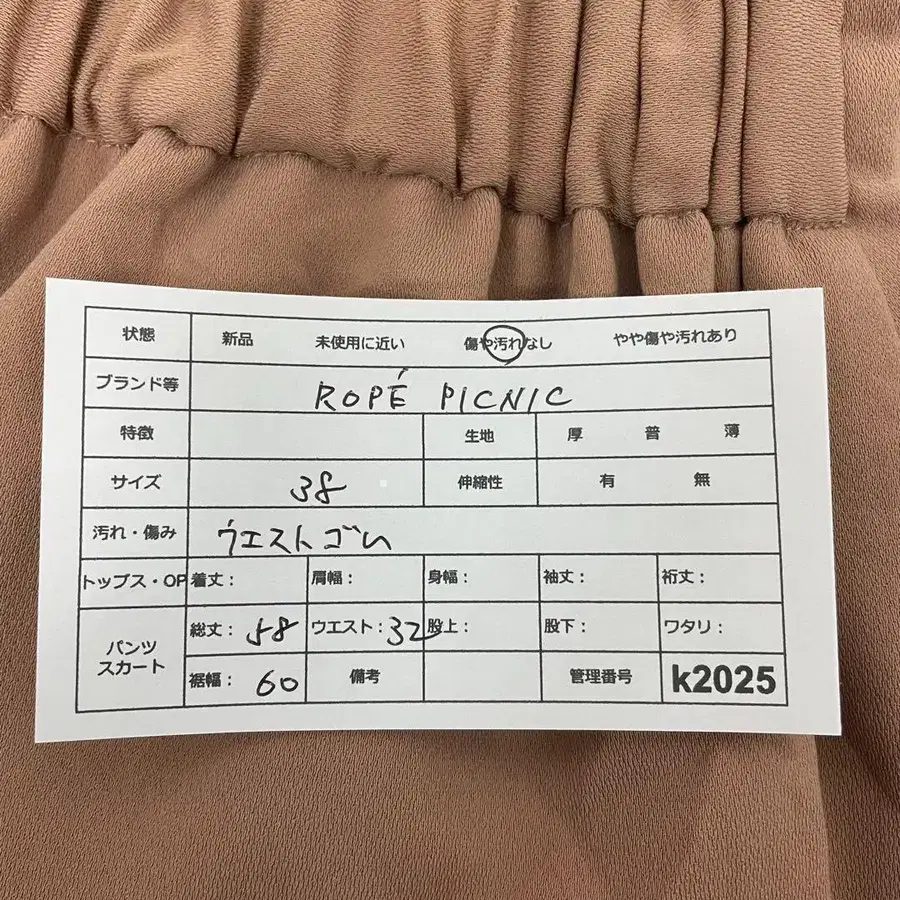 状態 新品 未使用に近い 傷や汚れなし やや傷や汚れあり
ブランド等 ROPÉ PICNIC
特徴 生地 厚 普 薄
サイズ 38 伸縮性 有 無
汚れ・傷み ウエストゴム
トップス・OP 着丈： 肩幅： 身幅： 袖丈： 裄丈：
パンツ スカート 総丈：58 ウエスト：32 股上： 股下： ワタリ：
裾幅：60 備考 管理番号 k2025